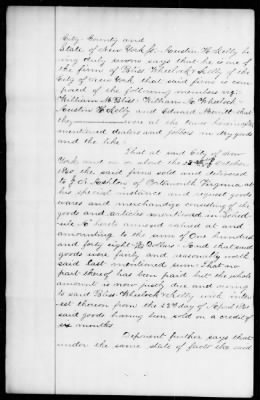 City County and
State of New York ss. Austin W Kelly be
ing duly sworn says that he is one of
the firm of Bliss Wheelock & Kelly of the
City of New York that said firm is com
posed of the following members viz:
William M Bliss William Wheelock
Austin W Kelly and Edward
they were at the times hereinafter
mentioned dealers and jobbers in dry goods
and the like.
That at said City of New
York and on or about the October
the said firm sold and delivered
to J. N. Ashton of Portsmouth Virginia at
his special instance and request goods
wares and merchandize consisting of the
goods and articles mentioned in Sched
ule A hereto annexed valued at and
amounting to the sum of One hundred
and forty eight Dollars. And that said
goods were fairly and reasonably worth
said last mentioned sum that no
part thereof has been paid but the whole
amount is now justly due and owing
to said Bliss Wheelock & Kelly with inter
est thereon from the 23d day of April
said goods having been sold on a credit of
six months.
Deponent further says that
under the same state of facts the said